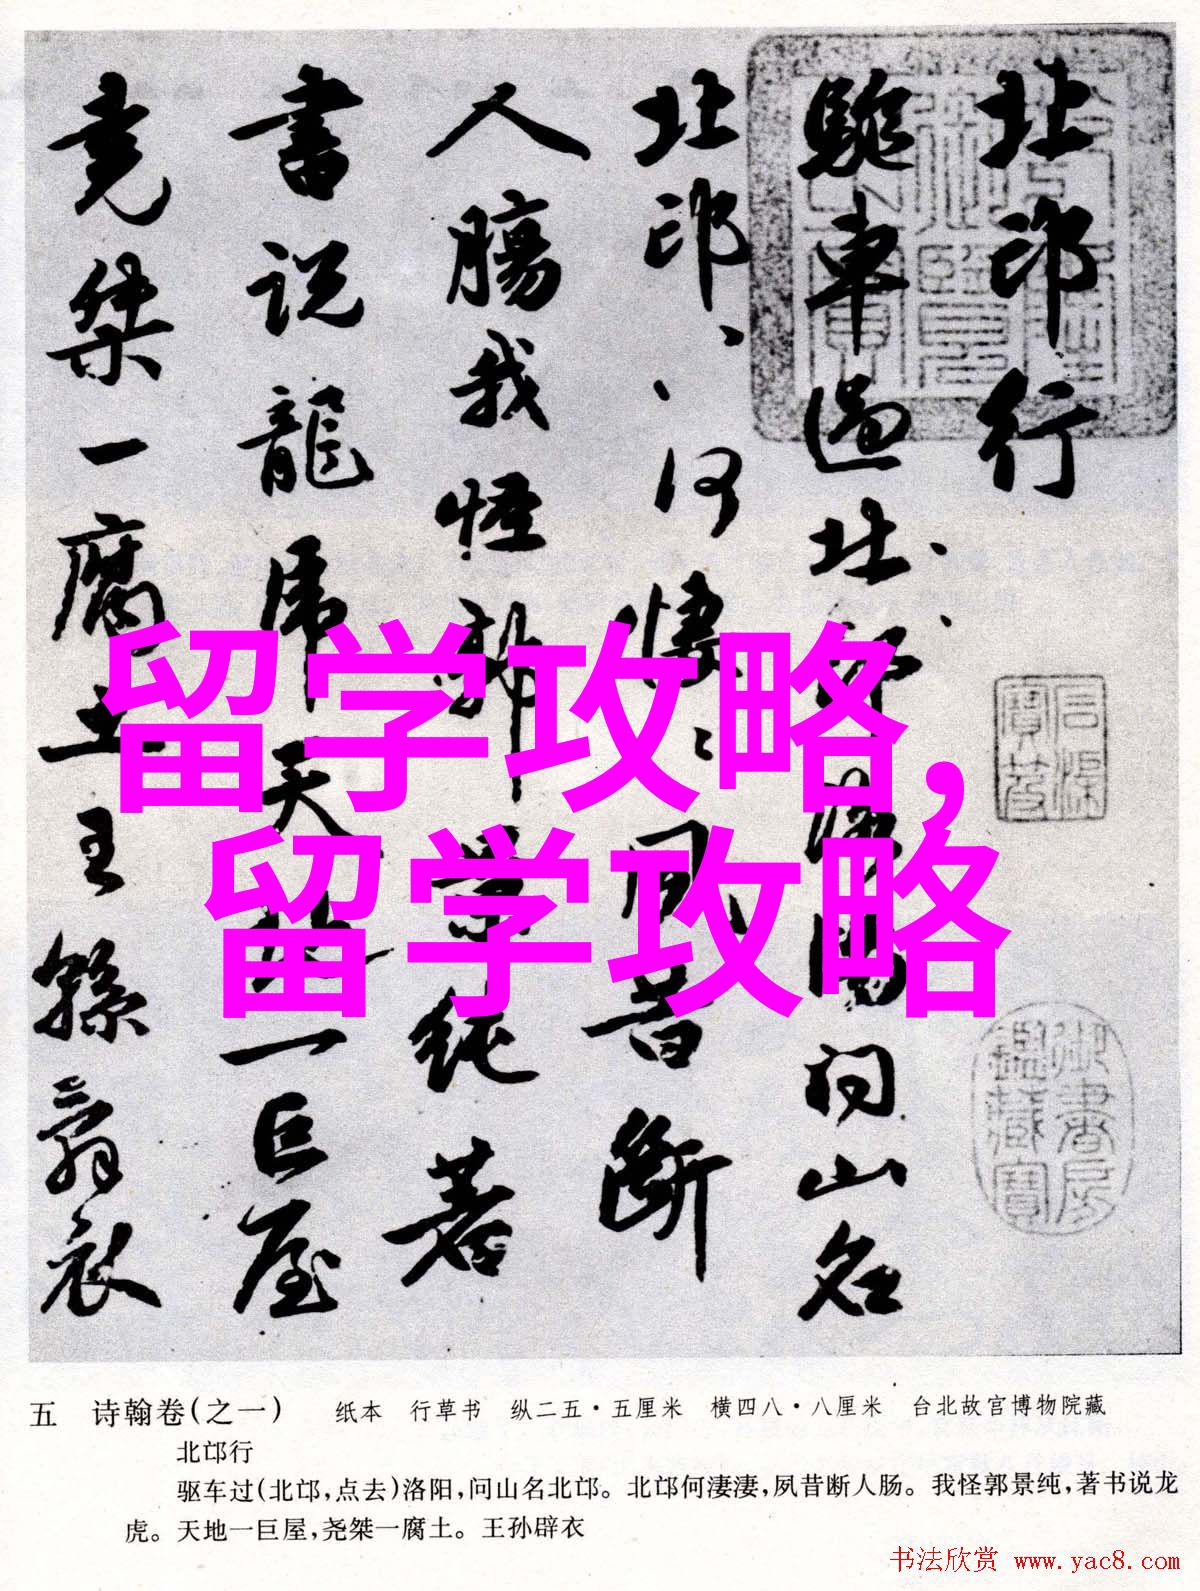 北邙行
駈車過北邙洛陽問山名
北邙何悽夙昔斷
人腸我怪郭景純著
書説龍虎天地一巨屋
堯桀一腐土王孫辟衣
石渠寶笈
御書房鑑藏寶
留学攻略,
留学攻略
五 诗翰卷(之一) 纸本 行草书 纵二五·五厘米 横四八·八厘米 台北故宫博物院藏
北邙行
驱车过(北邙,点去)洛阳,问山名北邙。北邙何凄凄,夙昔断人肠。我怪郭景纯,著书说龙
虎。天地一巨屋,尧桀一腐土。王孙辟衣
书法欣赏 www.yac8.com